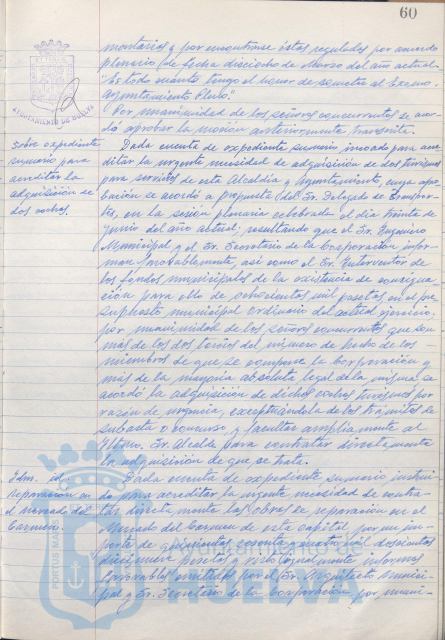 60
montarios y por encontrarse éstos regulados por acuerdo
plenario de fecha dieciocho de Marzo del año actual.
"Es todo cuanto tengo el honor de someter al Excmo.
Ayuntamiento Pleno."
Por unanimidad de los señores concurrentes se acor-
dó aprobar la moción anteriormente transcrita.
AYUNTAMIENTO DE HUELVA
Sobre expediente
sumario para
acreditar la
adquisición de
dos coches.
Dada cuenta de expediente sumario incoado para acre-
ditar la urgente necesidad de adquisición de dos turismos
para servicios de esta Alcaldía y Ayuntamiento, cuya apro-
bación se acordó a propuesta del Sr. Delegado de Transpor-
tes, en la sesión plenaria celebrada el día treinta de
Junio del año actual, resultando que el Sr. Ingeniero
Municipal y el Sr. Secretario de la Corporación infor-
man favorablemente, así como el Sr. Interventor de
los fondos municipales de la existencia de consigna-
ción para ello de ochocientas mil pesetas en el pre-
supuesto municipal ordinario del actual ejercicio,
por unanimidad de los señores concurrentes que son
más de los dos tercios del número de hecho de los
miembros de que se compone la Corporación y
más de la mayoría absoluta legal de la misma, se
acordó la adquisición de dichos coches turismos por
razón de urgencia, exceptuándola de los trámites de
subasta o concurso y facultar ampliamente al
Iltmo. Sr. Alcalde para contratar directamente
la adquisición de que se trata.
Idm. id.
reparación en
el mercado del
Carmen.
Dada cuenta de expediente sumario instrui-
do para acreditar la urgente necesidad de contra-
tar directamente las obras de reparación en el
Mercado del Carmen de esta Capital por un im-
porte de quinientas sesenta y cuatro mil doscientas
diecinueve pesetas y visto igualmente informes
favorables emitidos por el Sr. Arquitecto Munici-
pal y Sr. Secretario de la Corporación por unani-
PORTUS MARIS
Ayuntamiento de
HUELVA